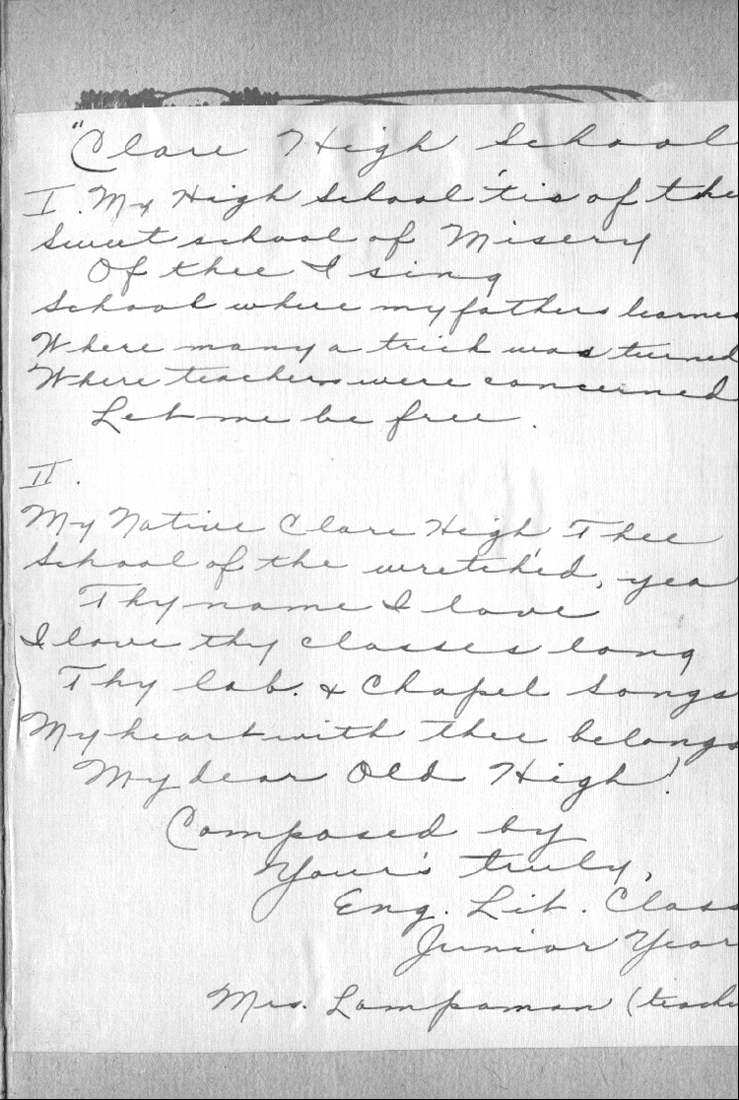 "Clare High School
I. My High School 'tis of the
Sweet school of Misery
Of thee I sing
School where my fathers learned
Where many a trick was turned
Where teachers were concerned
Let me be free.
II.
My Native Clare High, Thee
School of the wretched, yea
Thy name I love
I love thy classes long
Thy lab. & Chapel Songs
My heart with thee belongs
My dear Old High!
Composed by
Your's truly,
Eng. Lit. Class
Junior Year
Mrs. Lampaman (teache